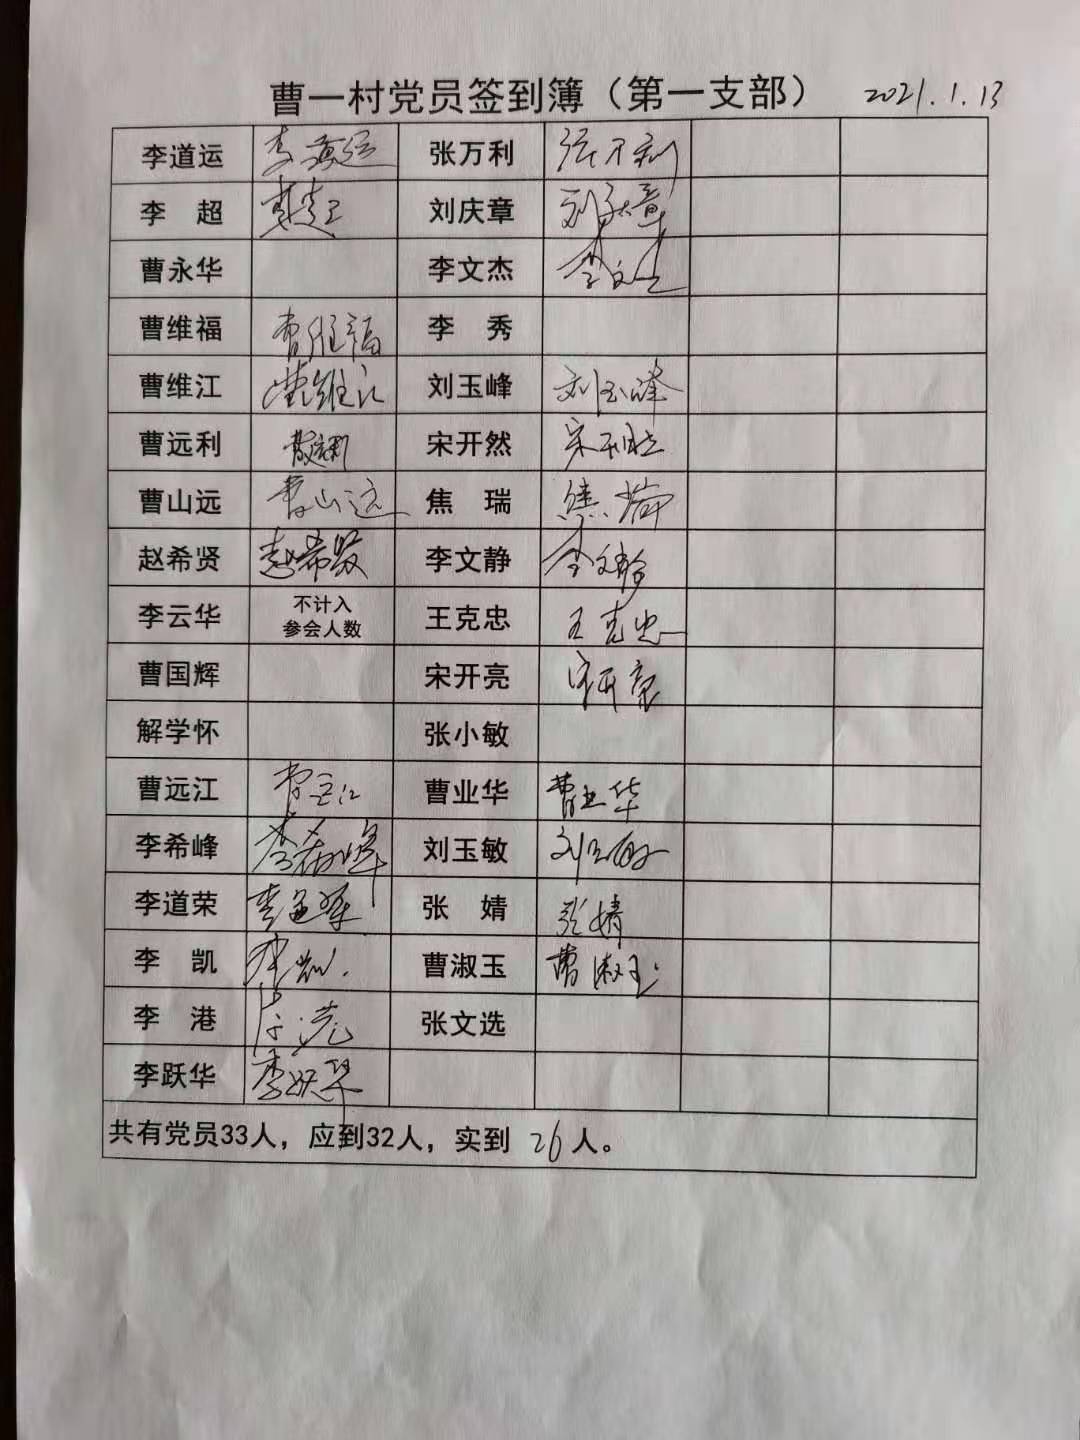 曹一村党员签到簿（第一支部） 2021.1.13
李道运 李道运 张万利 张万利
李 超 李超 刘庆章 刘庆章
曹永华 李文杰 李文杰
曹维福 曹维福 李 秀
曹维江 曹维江 刘玉峰 刘玉峰
曹远利 曹远利 宋开然 宋开然
曹山远 曹山远 焦 瑞 焦瑞
赵希贤 赵希贤 李文静 李文静
李云华 不计入 王克忠 王克忠
参会人数
曹国辉 宋开亮 宋开亮
解学怀 张小敏
曹远江 曹远江 曹业华 曹业华
李希峰 李希峰 刘玉敏 刘玉敏
李道荣 李道荣 张 婧 张婧
李 凯 李凯 曹淑玉 曹淑玉
李 港 李港 张文选
李跃华 李跃华
共有党员33人，应到32人，实到 26 人。